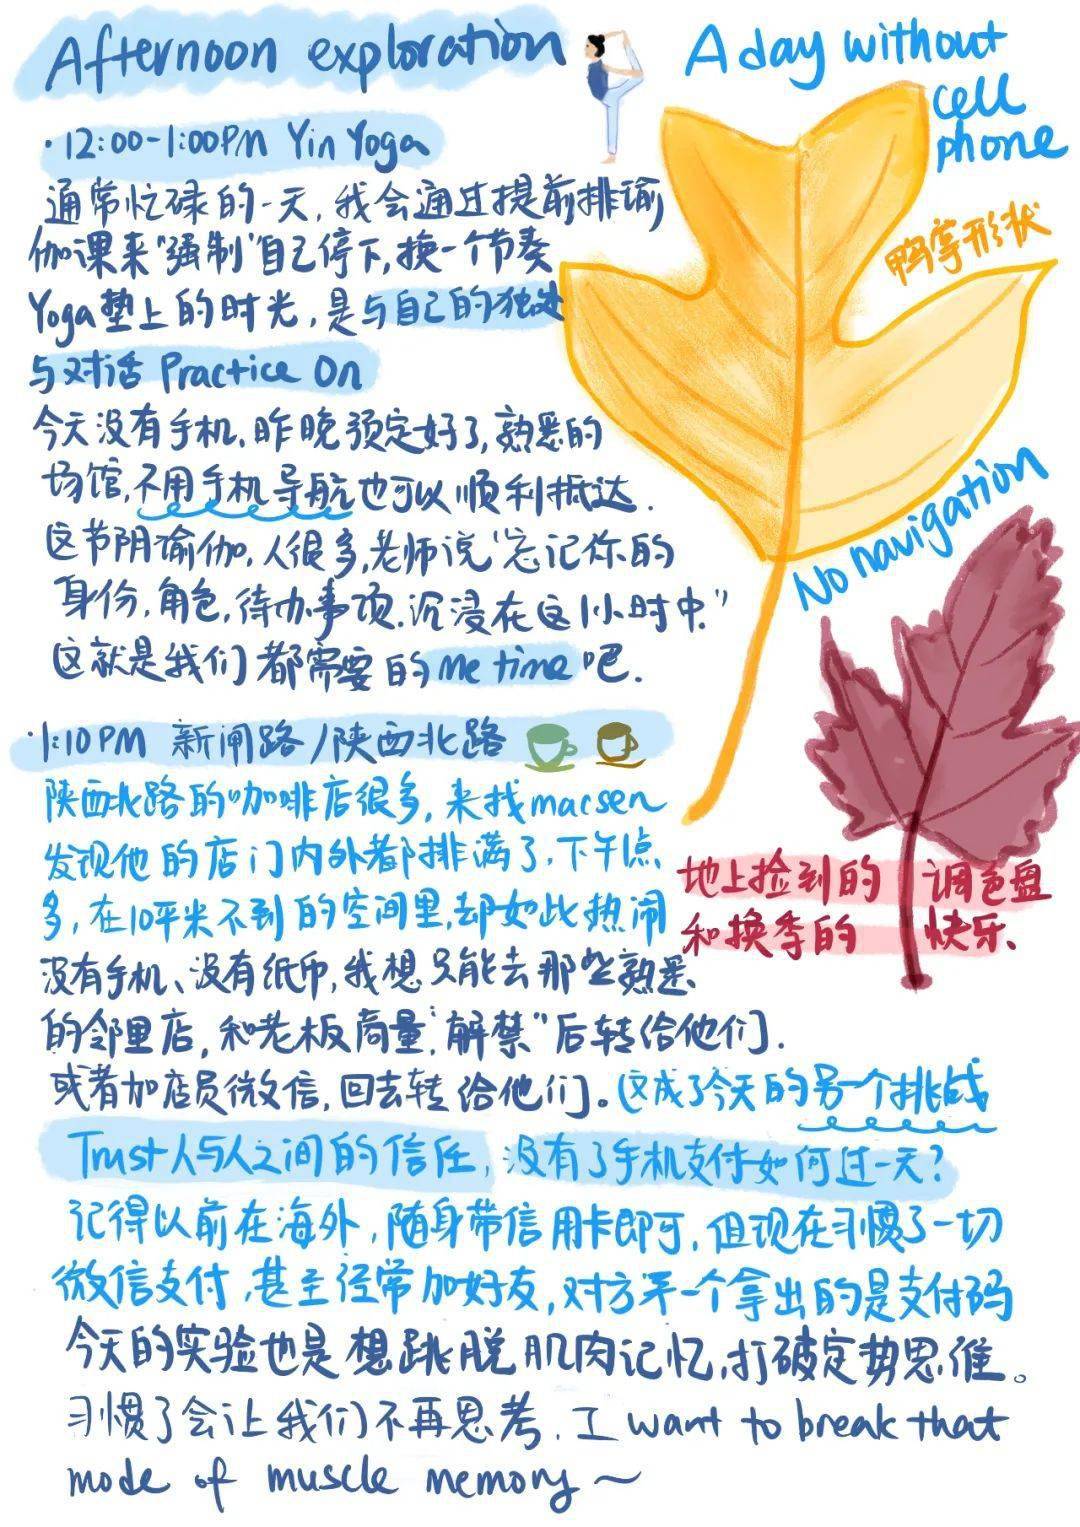 Afternoon exploration
A day without
cell
phone
·12:00-1:00PM Yin Yoga
通常忙碌的一天,我会通过提前排瑜
伽课来"强制"自己停下,换一个节奏
Yoga垫上的时光,是与自己的独处
与对话 Practice On
鸭掌形状
今天没有手机,昨晚预定好了,熟悉的
场馆,不用手机导航也可以顺利抵达.
这节阴瑜伽,人很多,老师说"忘记你的
身份,角色,待办事项.沉浸在这1小时中."
这就是我们都需要的me time吧.
No navigation
·1:10PM 新闸路/陕西北路
陕西北路的咖啡店很多,来找macsen
发现他的店门内外都排满了,下午1点
多,在10平米不到的空间里,却如此热闹
没有手机、没有纸币,我想只能去那些熟悉
的邻里店,和老板商量"解禁"后转给他们.
或者加店员微信,回去转给他们。这成了今天的另一个挑战
地上捡到的调色盘
和换季的快乐、
Trust人与人之间的信任,没有了手机支付如何过一天?
记得以前在海外,随身带信用卡即可,但现在习惯了一切
微信支付,甚至经常加好友,对方第一个拿出的是支付码
今天的实验也是想跳脱肌肉记忆,打破定势思维。
习惯了会让我们不再思考.I want to break that
mode of muscle memory~